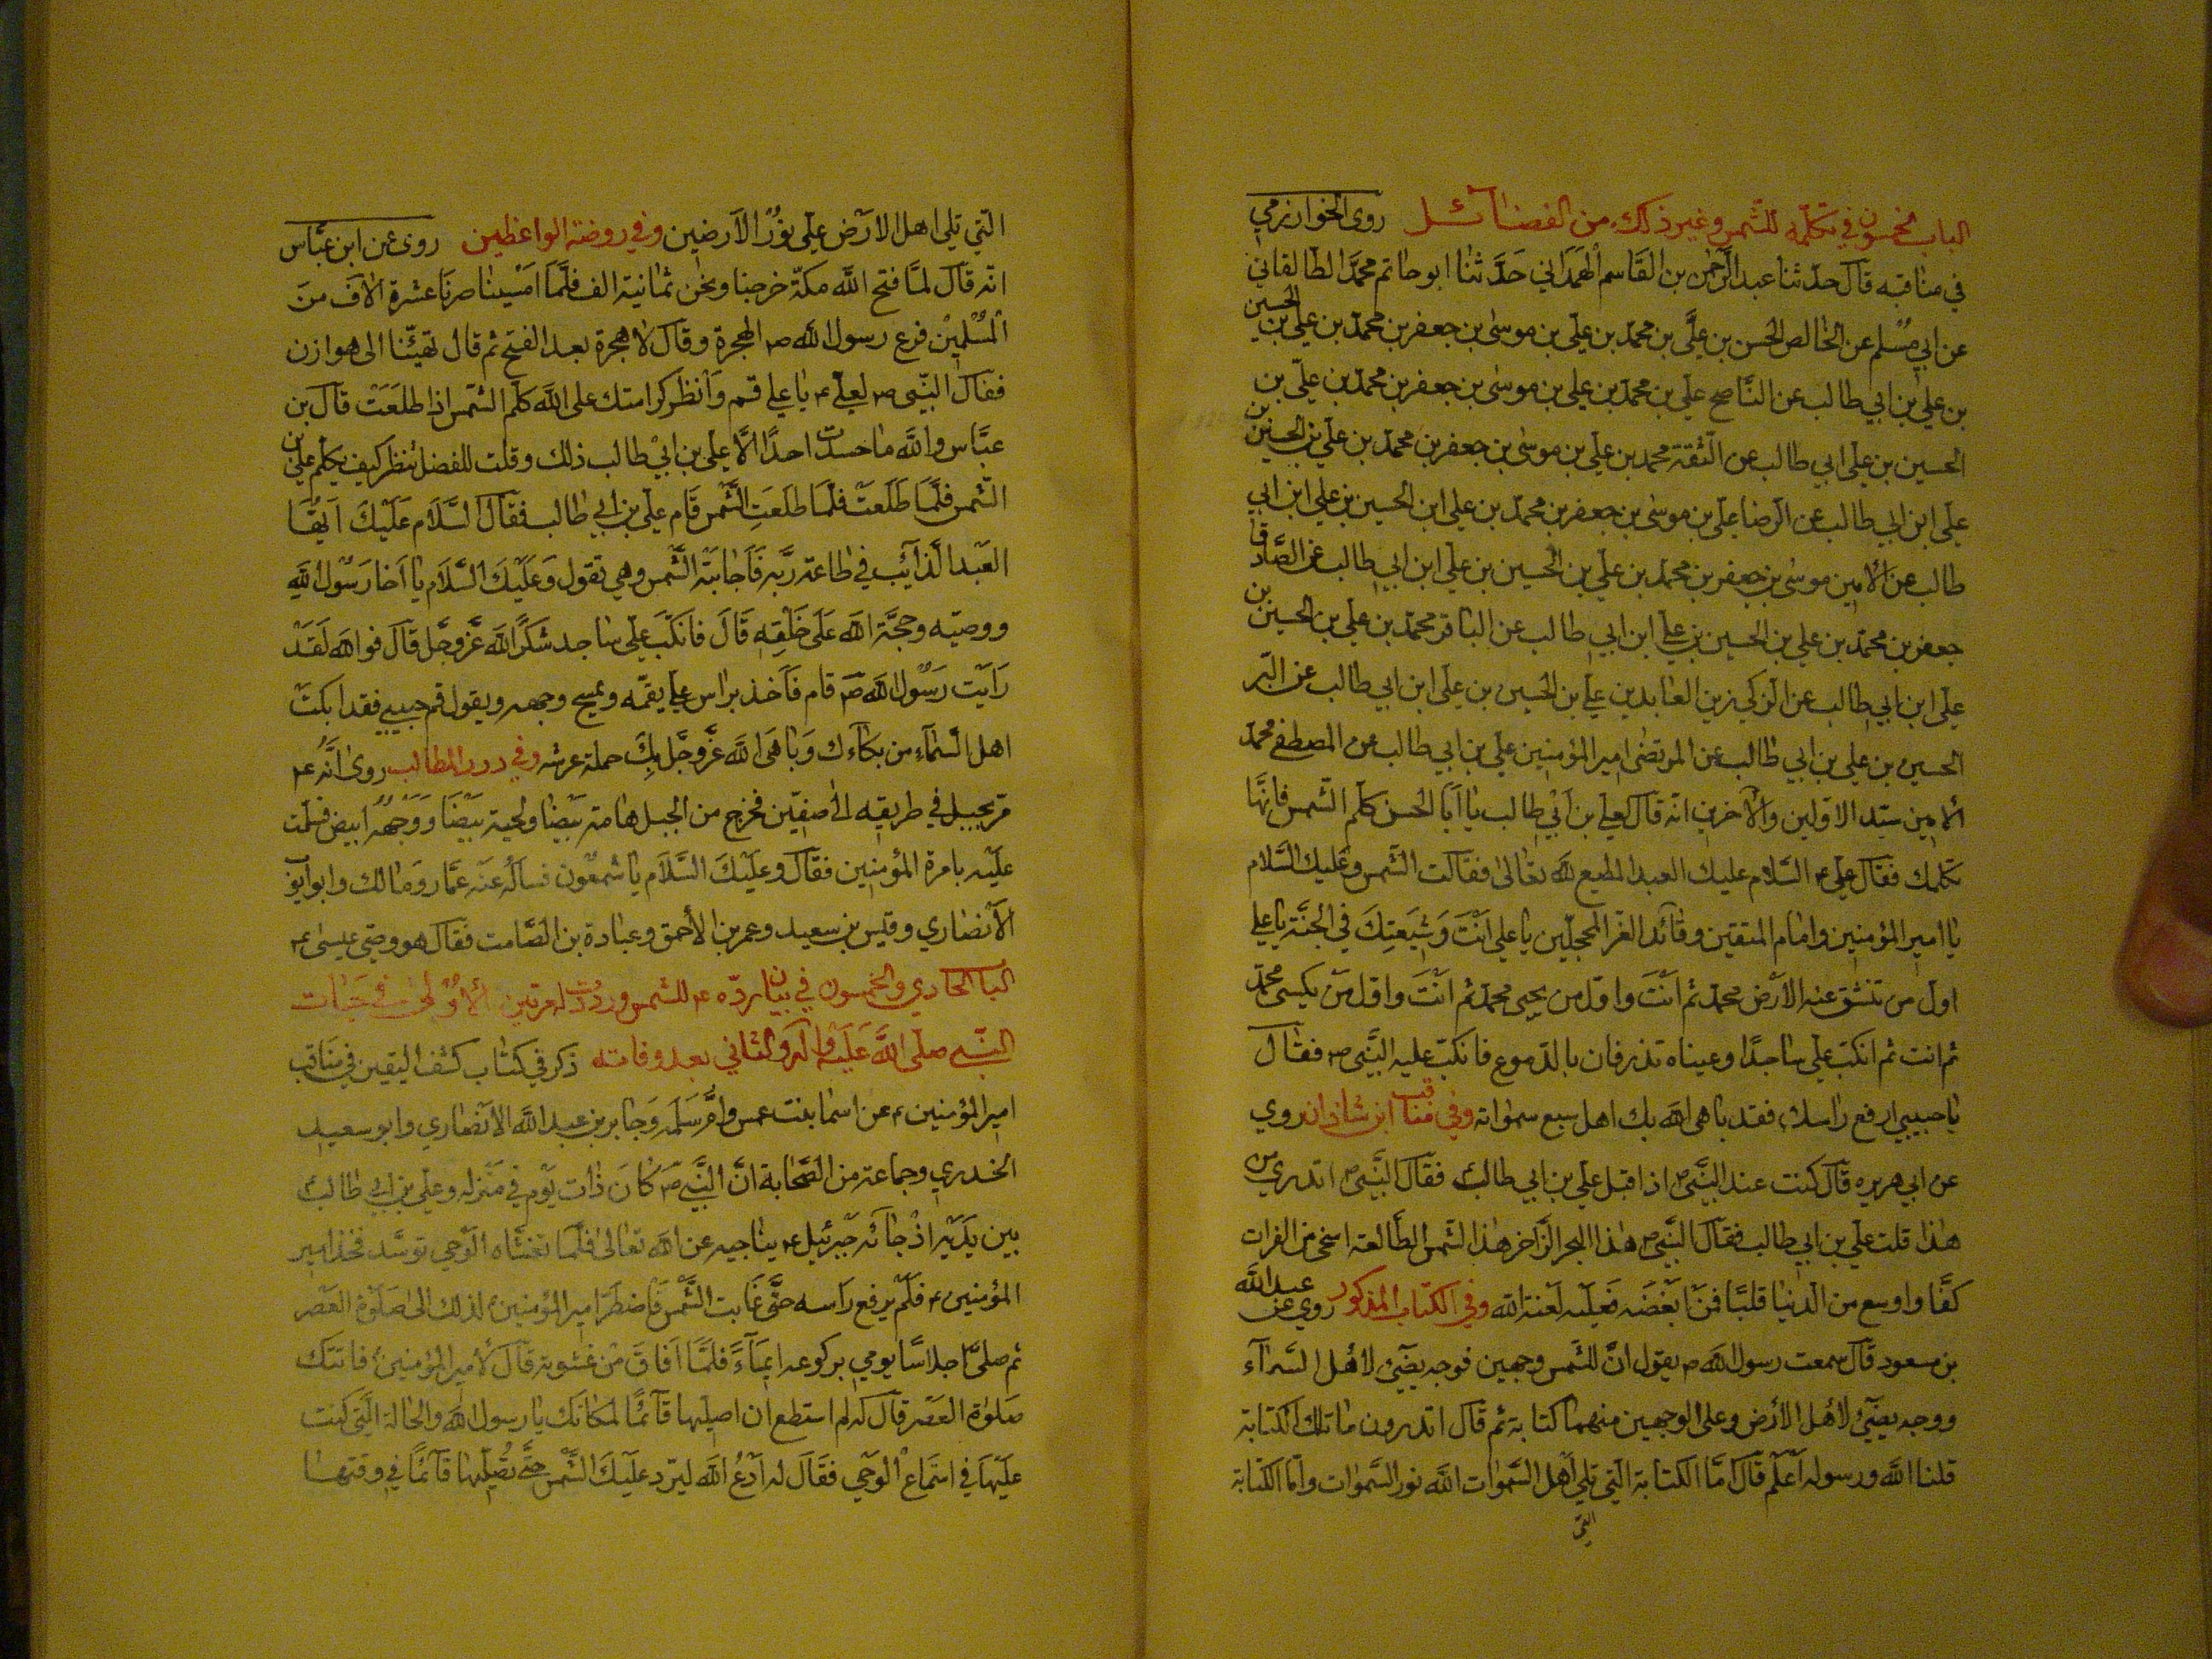 الباب الخمسون في تكلّمه للشّمس وغير ذلك من الفضائل روى الخوارزمي
في مناقبه قال حدّثنا عبد الرّحمن بن القاسم الهمداني حَدَّثنا ابو حاتم محمّد الطالقاني
عن ابي مُسْلم عن الخالص الحسن بن عليّ بن محمّد بن علي بن موسى بن جعفر بن محمّد بن علي بن الحسين
بن علي بن ابي طالب عن النّاصح علي بن محمّد بن علي بن موسى بن جعفر بن محمّد بن علي بن
الحسين بن علي ابي طالب عن الثّقة محمد بن علي بن موسى بن جعفر بن محمّد بن علي بن الحسين بن
علي ابن ابي طالب عن الرضا علي بن موسى بن جعفر بن محمّد بن علي ابن الحسين بن علي ابن ابي
طالب عن الأمين موسى بن جعفر بن محمّد بن علي بن الحسين بن علي ابن ابي طالب عن الصّادق
جعفر بن محمّد بن علي بن الحسين بن علي ابن ابي طالب عن الباقر محمّد بن علي بن الحسين بن
علي ابن ابي طالب عن الزكي زين العابدين علي بن الحسين بن علي ابن ابي طالب عن البّر
الحسين بن علي بن ابي طالب عن المرتضى امير المؤمنين علي بن ابي طالب عن المصطفى محمّد
ألامين سيّد الاوّلين والآخرين انّه قال لعلي بن ابي طالب يا اَبا الحسن كلّم الشّمس فانّها
تكلّمك فقال علي ع السّلام عليك العبد المطيع لله تعالى فقالت الشّمس وعليك السّلام
يا امير المؤمنين وامام المتقين وقائد الغرّ المحجلّين يا علي اَنْتَ وَشيعَتِكَ في الجنّة يا علي
اول من تنشق عنه الاَرْض محمّد ثم اَنْتَ واوّل من يحيى محمّد ثم اَنْتَ واوّل مَنْ يكسى محمّد
ثم انت ثم انكبّ علي ساجدًا وعيناه تذرفان بالدّموع فانكبّ عليه النّبي ص فقال
يا حبيبي ارفع راسك فقد باهى الله بك اهل سبع سمواته وفي مناقب ابن شاذان روي
عن ابي هريره قال كنت عند النّبي ص اذ اقبل علي بن ابي طالب فقال النّبي ص اتدري من
هذا قلت علي بن ابي طالب فقال النّبي ص هذا البحر الزّاخر هذا الشّمس الطّالعة اسخى من الفرات
كفًّا واوسع من الدّنيا قلبًا فمَنْ ابْغَضَه فَعليْه لَعْنة الله وفي الكتاب المذكور روي عن عبد الله
بن مسعود قال سمعت رسول الله ص يقول انّ للشّمس وجهين فوجه يضيئ لاهْل السّمآء
ووجه يضيئ لاهْل الأرض وعلى الوجهين منهما كتابة ثم قال اتدرون ما تلك الكتابة
قلنا الله ورسوله اَعْلم قال امّا الكتابة الّتي تلي اَهْل السّموات الله نور السّموات وامّا الكتابة
التي
الّتي تلي اهل الاَرْض علي نُوْرُ الاَرضين وفي روضة الواعظين روى عن ابن عبّاس
انّه قال لمّا فتح الله مكّة خرجنا ونحن ثمانية الف فلمّا امْسينا صرنا عشرة الاف من
المُسْلمين فرع رسول الله ص الهجرة وقال لا هجرة بعد الفتح ثم قال تهيّئنا الى هوازن
فقال النّبي ص لعلي ع يا علي قم وَانظر كرامتك على الله كلّم الشّمس اذا طلَعَتْ قال بن
عبّاس والله ما حسدت احدًا الّا علي بن ابي طالب ذلك وقلت للفضل ننظر كيف يكلّم علي بن
الشّمس فلمّا طَلَعَتْ فلمّا طلعَتِ الشَّمس قام علي بن ابي طالب فقال السَّلَام عَلَيْكَ اَيّهَا
العَبْد الدّآئب في طاعة ربّه فَاَجابَتْه الشّمس وهي تقول وَعَلَيْكَ السَّلَام يا اَخا رَسُوْل الله
ووصيّه وحجَّة الله عَلَى خَلْقِه قَالَ فانكَبّ علي ساجد شكرًا لله عزّ وجلّ قال فوالله لَقَدْ
رَاَيْت رَسُوْل الله ص قام فَاَخذ براس علي يقمّه ويمسح وجهه ويقول قم حبيبي فقد ابكت
اهل السّماء من بكاءك وَباهَى الله عزّ وجلّ بك حملة عرشه وفي درر المطالب روى انّه ع
مرّ بجبل في طريقه الى صفّين فخرج من الجبل هامة بَيْضا ولحية بَيْضا وَوَجْهه ابيض فسلّمت
علَيْه بامرة المؤمنين فقال وعَلَيْكَ السَّلَام يا شمعون فساَله عنه عمّار ومَالك وابو اَيوب
الاَنصاري وقيس بن سعيد وعمر بن الأحمق وعبادة بن الصّامت فقال هو وصي عيسى ع
الباب الحادي والخمسون في بيان ردّه ع للشّمس وردّت له مرّتين الأوْلى في حَيات
النّبي صلى الله عَلَيْه وآله والثاني بعد وفاته ذكر في كتاب كشف اليقين في مناقب
امير المؤمنين ع عن اسما بنت عمس واُم سَلَمه وَجابر بن عبد الله الانصاري وابو سعيد
الخدري وجماعة من الصّحابة انَّ النَّبي ص كانَ ذات يَوْم في مَنْزله وعلي بن ابي طالب
بين يَدَيْه اذ جائه جبرئيل ع يناجيه عن الله تعالى فلمّا تغشّاه الوَحي توسّد فخذ امير
المؤمنين ع فلَمْ يرفع رَاسه حتّى غابت الشّمس فاضطَرّ امير المؤمنين ع لذلك الى صَلوة العَصْر
ثم صلّى جلاسًا يومي بركوعه ايماءً فلمّا اَفاق مْن غشوته قال لأمير المؤمنين ع فاتتك
صَلوة العَصْر قال له لم استطع ان اصلّيها قآئمًا لمكانك يا رسول الله والحالة الّتي كنت
عليَها في استماع الوَحي فقَالَ له اُدْعُ الله ليَرد عليَكَ الشَّمْس حتّى تُصلّيها قآئمًا في وقتها